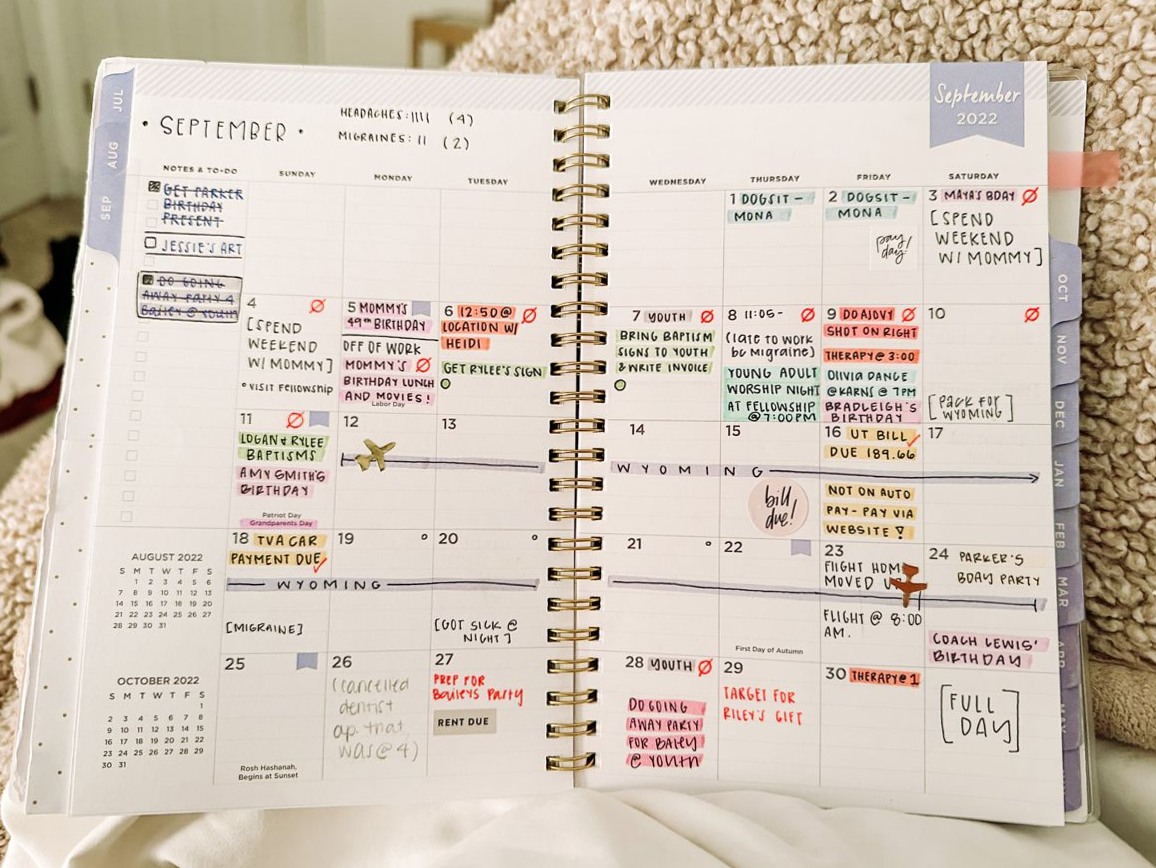 JUL
AUG
SEP
• SEPTEMBER •
HEADACHES: IIII (4)
MIGRAINES: II (2)
September
2022
NOTES & TO-DO
SUNDAY
MONDAY
TUESDAY
WEDNESDAY
THURSDAY
FRIDAY
SATURDAY
GET PARKER
BIRTHDAY
PRESENT
JESSIE'S ART
DO GOING
AWAY PARTY 4
Bailey @ Youth
1 DOGSIT -
MONA
2 DOGSIT -
MONA
pay
day!
3 MAYA'S BDAY
[SPEND
WEEKEND
W/ MOMMY]
4
[SPEND
WEEKEND
W/ MOMMY]
° VISIT FELLOWSHIP
5 MOMMY'S
49th BIRTHDAY
OFF OF WORK
MOMMY'S
BIRTHDAY LUNCH
AND MOVIES!
Labor Day
6 12:50 @
LOCATION W/
HEIDI
GET RYLEE'S SIGN
7 YOUTH
BRING BAPTISM
SIGNS TO YOUTH
& WRITE INVOICE
8 11:05 -
(late to work
bc migraine)
YOUNG ADULT
WORSHIP NIGHT
AT FELLOWSHIP
@ 7:00PM
9 DO AJOVY
SHOT ON RIGHT
THERAPY @ 3:00
OLIVIA DANCE
@ KARNS @ 7PM
BRADLEIGH'S
BIRTHDAY
10
[PACK FOR
WYOMING]
11
LOGAN & RYLEE
BAPTISMS
AMY SMITH'S
BIRTHDAY
Patriot Day
Grandparents Day
12
13
14
15
WYOMING
bill
due!
16 UT BILL
DUE 189.66
NOT ON AUTO
PAY - PAY VIA
WEBSITE !
17
18 TVA CAR
PAYMENT DUE
WYOMING
[MIGRAINE]
19
20
[GOT SICK @
NIGHT]
21
22
First Day of Autumn
23
FLIGHT HOME
MOVED
FLIGHT @ 8:00
AM.
24 PARKER'S
BDAY PARTY
COACH LEWIS'
BIRTHDAY
25
Rosh Hashanah,
Begins at Sunset
26
(cancelled
dentist
ap. that
was @ 4)
27
PREP FOR
Bailey's Party
RENT DUE
28 YOUTH
DO GOING
AWAY PARTY
FOR Bailey
@ YOUTH
29
TARGET FOR
RILEY'S GIFT
30 THERAPY @ 1
[FULL
DAY]
AUGUST 2022
S M T W T F S
1 2 3 4 5 6
7 8 9 10 11 12 13
14 15 16 17 18 19 20
21 22 23 24 25 26 27
28 29 30 31
OCTOBER 2022
S M T W T F S
1
2 3 4 5 6 7 8
9 10 11 12 13 14 15
16 17 18 19 20 21 22
23 24 25 26 27 28 29
30 31
OCT
NOV
DEC
JAN
FEB
MAR
APR
MAY